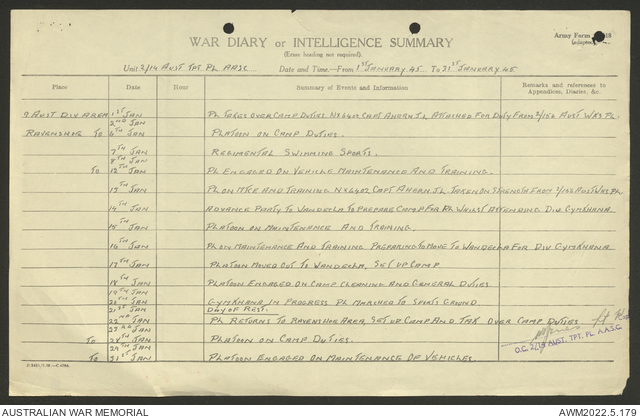 Army Form
(adapted)
WAR DIARY or INTELLIGENCE SUMMARY
(Erase heading not required).
Unit 2/14 AUST TPT PL AASC Date and Time—From 1ST JANUARY 45 To 31ST JANUARY 45
Place Date Hour Summary of Events and Information Remarks and references to Appendices, Diaries, &c
9 AUST DIV AREA 1ST JAN PL TAKES OVER CAMP DUTIES. CAPT AHERN J.L ATTACHED FOR DUTY FROM AUST WKS PL.
2ND JAN
RAVENSHOE TO 6TH JAN PLATOON ON CAMP DUTIES.
7TH JAN REGIMENTAL SWIMMING SPORTS.
8TH JAN
TO 12TH JAN PL ENGAGED ON VEHICLE MAINTENANCE AND TRAINING.
13TH JAN PL ON MTCE AND TRAINING CAPT AHERN J.L TAKEN ON STRENGTH FROM AUST WKS PL
14TH JAN ADVANCE PARTY TO WANDECLA TO PREPARE CAMP FOR PL WHILST ATTENDING DIV GYMKHANA
15TH JAN PLATOON ON MAINTENANCE AND TRAINING.
16TH JAN PL ON MAINTENANCE AND TRAINING PREPARING TO MOVE TO WANDECLA FOR DIV GYMKHANA
17TH JAN PLATOON MOVED OUT TO WANDECLA, SET UP CAMP.
18TH JAN PLATOON ENGAGED ON CAMP CLEANING AND GENERAL DUTIES.
19TH JAN
20TH JAN GYMKHANA IN PROGRESS PL MARCHED TO SPORTS GROUND.
21ST JAN DAY OF REST.
22ND JAN PL RETURNS TO RAVENSHOE AREA, SET UP CAMP AND TAK OVER CAMP DUTIES.
23RD JAN
TO JAN PLATOON ON CAMP DUTIES.
JAN
TO 31ST JAN PLATOON ENGAGED ON MAINTENANCE OF VEHICLES.
O.C. 2/14 AUST. TPT. PL. A.A.S.C.
AUSTRALIAN WAR MEMORIAL AWM2022.5.179